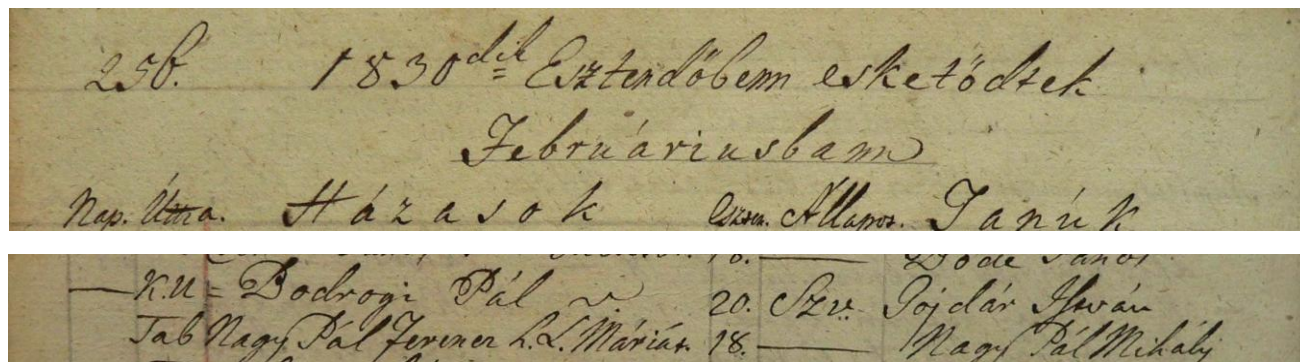 256. 1830dik Esztendőbenn esketődtek
Februáriusbann
Nap. Útza. Házasok Eszten. Állapot. Tanúk
18. — Bode János
— K.U = Bodrogi Pál 20. Szv. Pojdár István
Tab Nagy Pál Ferencz L. L. Máriát 18. — Nagy Pál Mihály